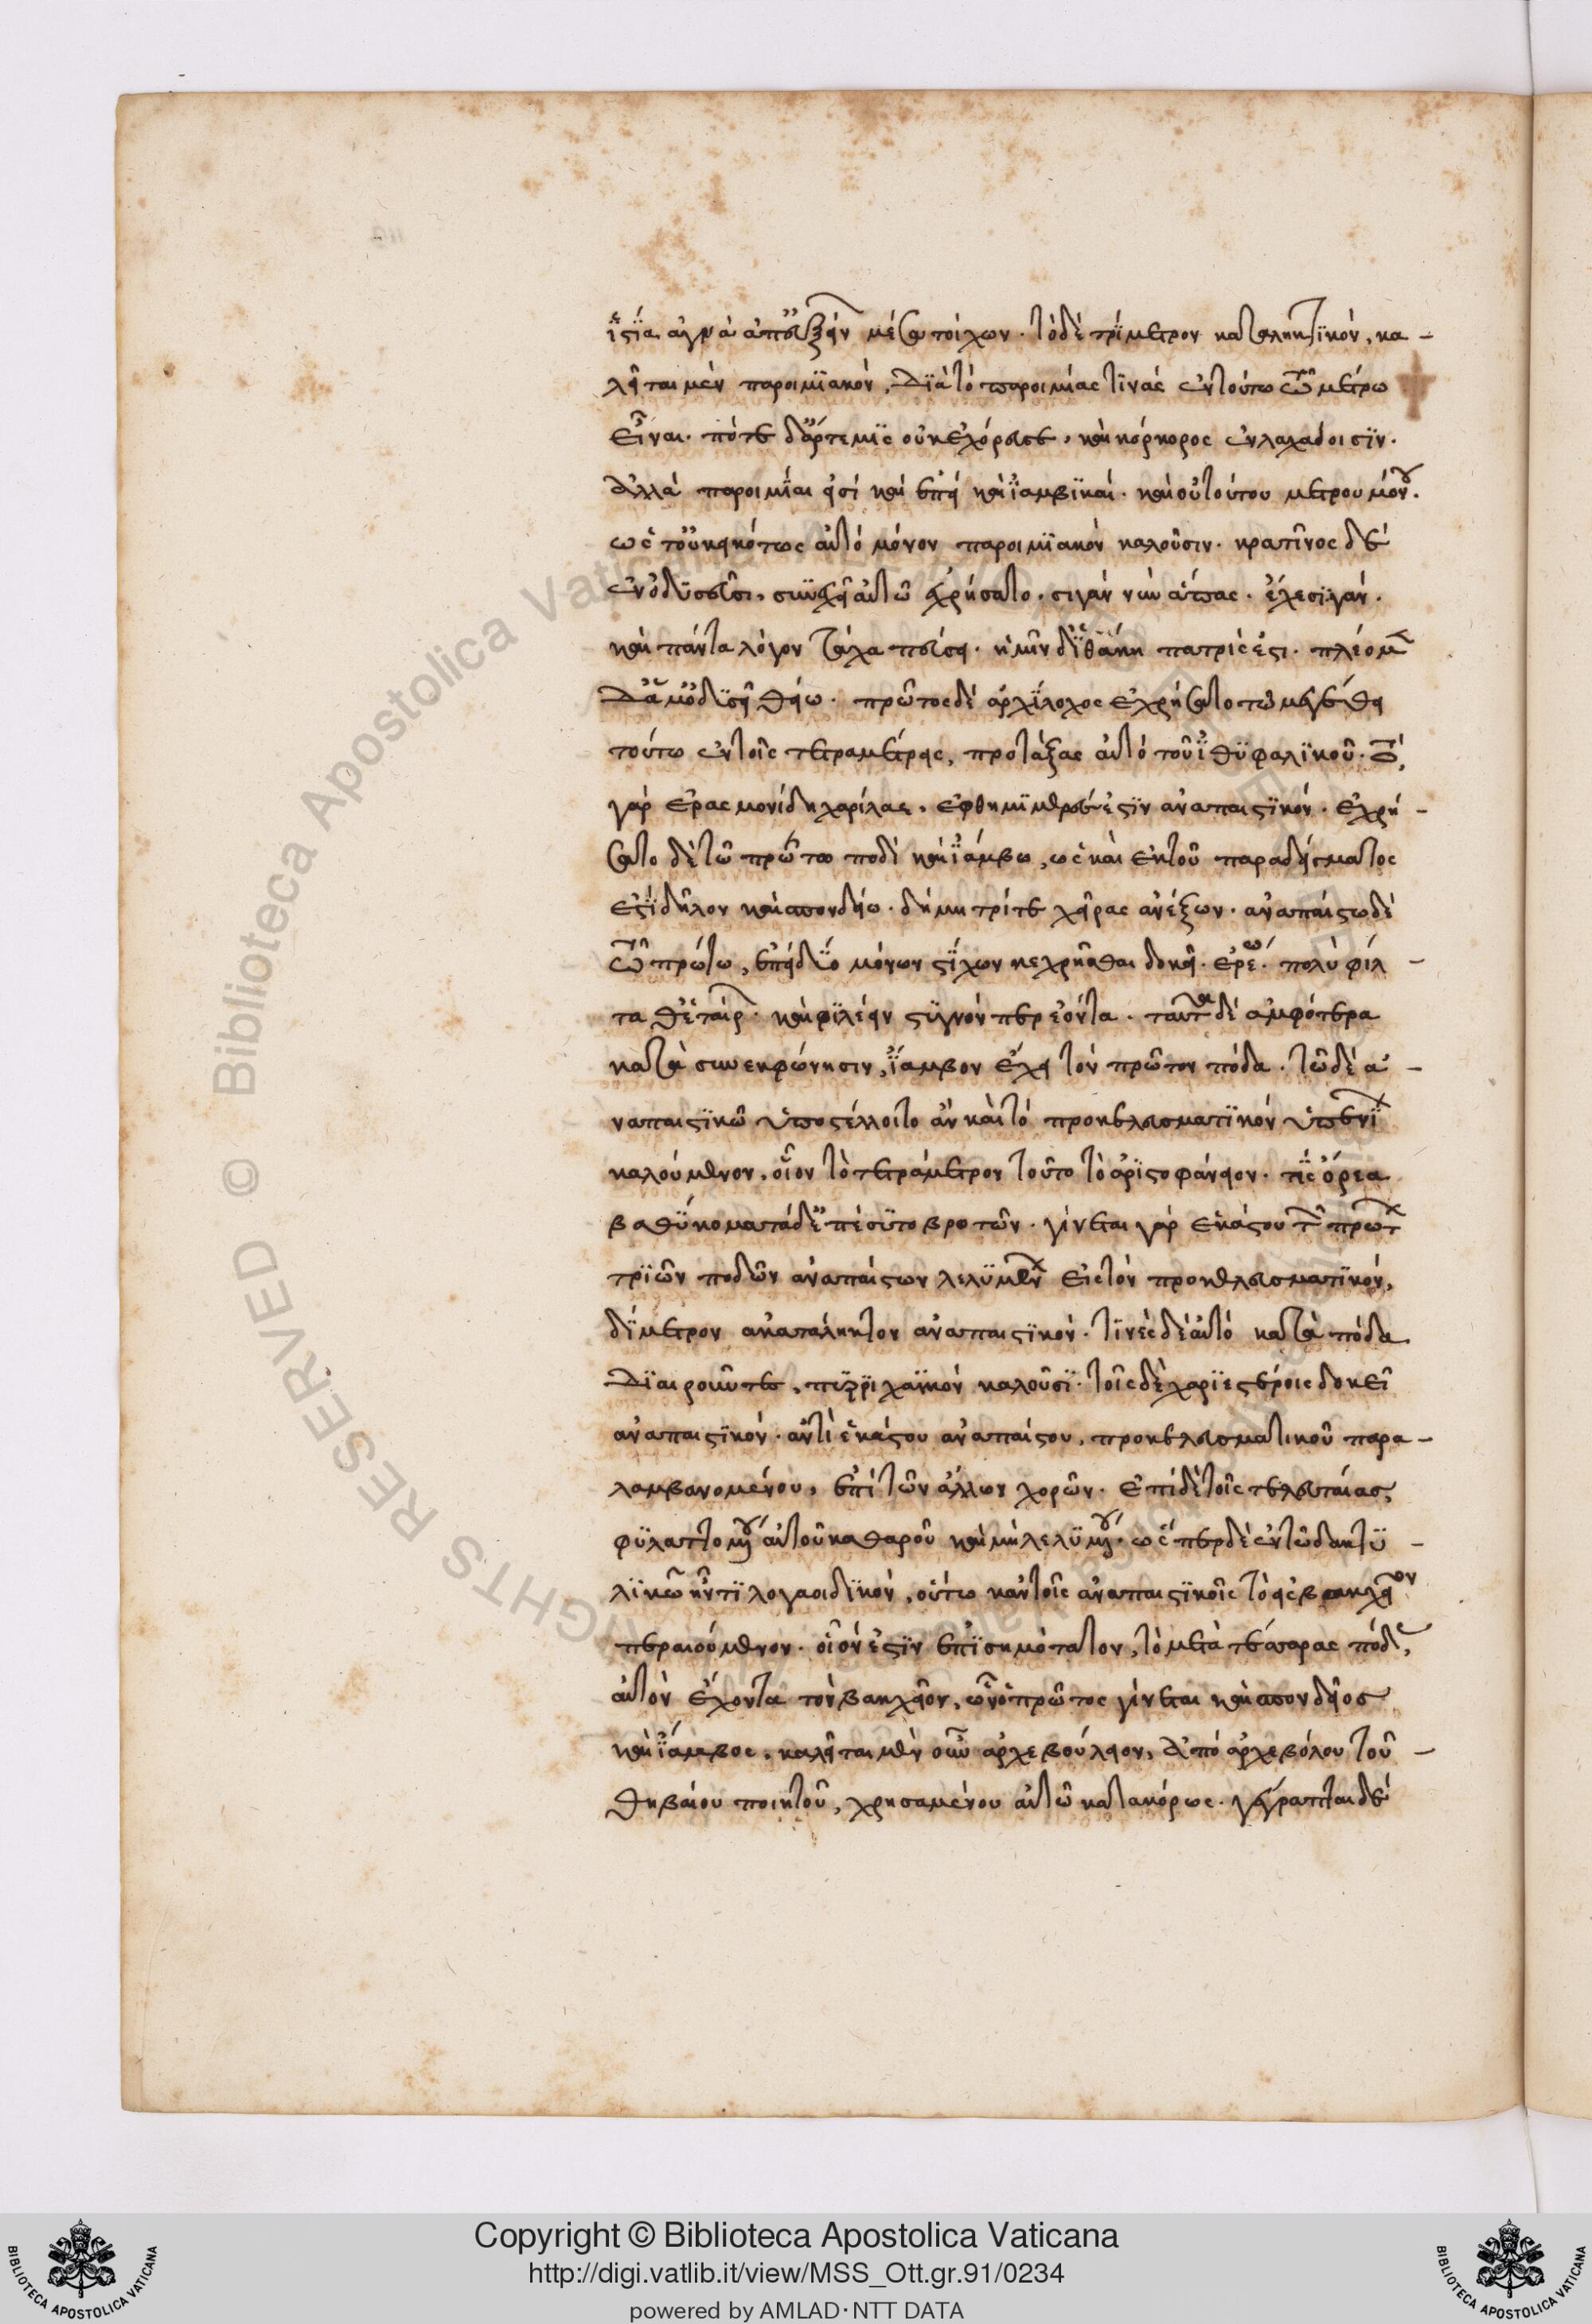 ἱστία ἁγνὰ ἀπ' εὐξείν μέσα τοίχων. τὸ δὲ τρίμετρον καταληκτικόν, κα-
λεῖται μὲν παροιμιακόν, διὰ τὸ παροιμίας τινὰς ἐν τούτω τῶ μέτρω
εἶναι. πότε δ' ἄρτεμις οὐκ ἐχόρευσε. καὶ κόρκορος ἐν λαχάνοισιν.
ἀλλὰ παροιμίαι εἰσί καὶ ἐπικαὶ καὶ ἰαμβικαί. καὶ οὐ τούτου μέτρου μόνου.
ὡς τοὐκ εἰκότως αὐτό μόνον παροιμιακὸν καλοῦσιν. κρατῖνος δὲ
ἐν ὀδυσσεῦσι, συνεχεῖ αὐτῶ ἐχρήσατο. σιγάν νυν ἅπας. ἔχε σιγάν.
καὶ πάντα λόγον τάχα πεύσει. ἡμῖν δ' ἰθάκη πατρὶς ἐστι. πλέομεν
δ' ἅμ' ὀδυσσεῖ θείω. πρῶτος δὲ ἀρχίλοχος ἐχρήσατο τῶ μεγέθει
τούτω ἐν τοῖς τετραμέτροις, προτάξας αὐτό τοῦ ἰθυφαλικοῦ. τό,
γὰρ ἐρασμονίδη χαρίλαε. ἐφθημιμερές ἐστιν ἀναπαιστικόν. ἐχρή-
σατο δὲ τῶ πρώτω ποδὶ καὶ ἰάμβω, ὡς καὶ ἐκ τοῦ παραδείγματος
ἐστὶ δῆλον καὶ σπονδείω. δήμητρί τε χεῖρας ἀνέξων. ἀναπαίστω δὲ
τῶ πρώτω, ἐπεὶ δύο μόνων στίχων κεχρῆσθαι δοκεῖ. ἐρέω. πολὺ φίλ-
ταθ' ἑταίρων. καὶ φιλέειν στυγνόν περ ἐόντα. ταῦτα δὲ ἀμφότερα
κατὰ συνεκφώνησιν, ἴαμβον ἔχει τὸν πρῶτον πόδα. τῶ δὲ ἀ-
ναπαιστικῶ ὑποστέλλοιτο ἂν καὶ τὸ προκελευσματικόν ὑπ' ἐνίων
καλούμενον, οἷον τὸ τετράμετρον τοῦτο τὸ ἀριστοφάνειον. τίς ὄρεα
βαθύκομα τάδ' ἐπέσυτο βροτῶν. γίνεται γὰρ ἑκάστου τῶν πρώτων
τριῶν ποδῶν ἀναπαίστων λελυμένων εἰς τὸν προκελευσματικόν,
δίμετρον ἀκατάληκτον ἀναπαιστικόν. τινὲς δὲ αὐτό κατὰ πόδα
διαιροῦντες, πυρριχαϊκόν καλοῦσι. τοῖς δὲ χαριεστέροις δοκεῖ
ἀναπαιστικόν. ἀντὶ ἑκάστου ἀναπαίστου, προκελευσματικοῦ παρα-
λαμβανομένου, ἐπὶ τῶν ἄλλων χορῶν. ἐπὶ δὲ τοῖς τελευταίας
φυλαττομένου αὐτοῦ καθαροῦ καὶ μὴ λελυμένου. ὥσπερ δὲ ἐν τῶ δακτυ-
λικῶ ἦν τι λογαοιδικόν, οὕτω κἀν τοῖς ἀναπαιστικοῖς τὸ εἰς βακχεῖον
περαιούμενον. οἷόν ἐστιν ἐπισημότατον, τὸ μετὰ τέσσαρας πόδας,
αὐτὸν ἔχοντα τὸν βακχεῖον, ὧν ὁ πρῶτος γίνεται καὶ σπονδεῖος
καὶ ἴαμβος. καλεῖται μὲν οὖν ἀρχεβούλειον, ἀπὸ ἀρχεβόλου τοῦ-
θηβαίου ποιητοῦ, χρησαμένου αὐτῶ κατακόρως. γέγραπται δὲ
Copyright © Biblioteca Apostolica Vaticana
http://digi.vatlib.it/view/MSS_Ott.gr.91/0234
powered by AMLAD · NTT DATA
BIBLIOTECA APOSTOLICA VATICANA
BIBLIOTECA APOSTOLICA VATICANA